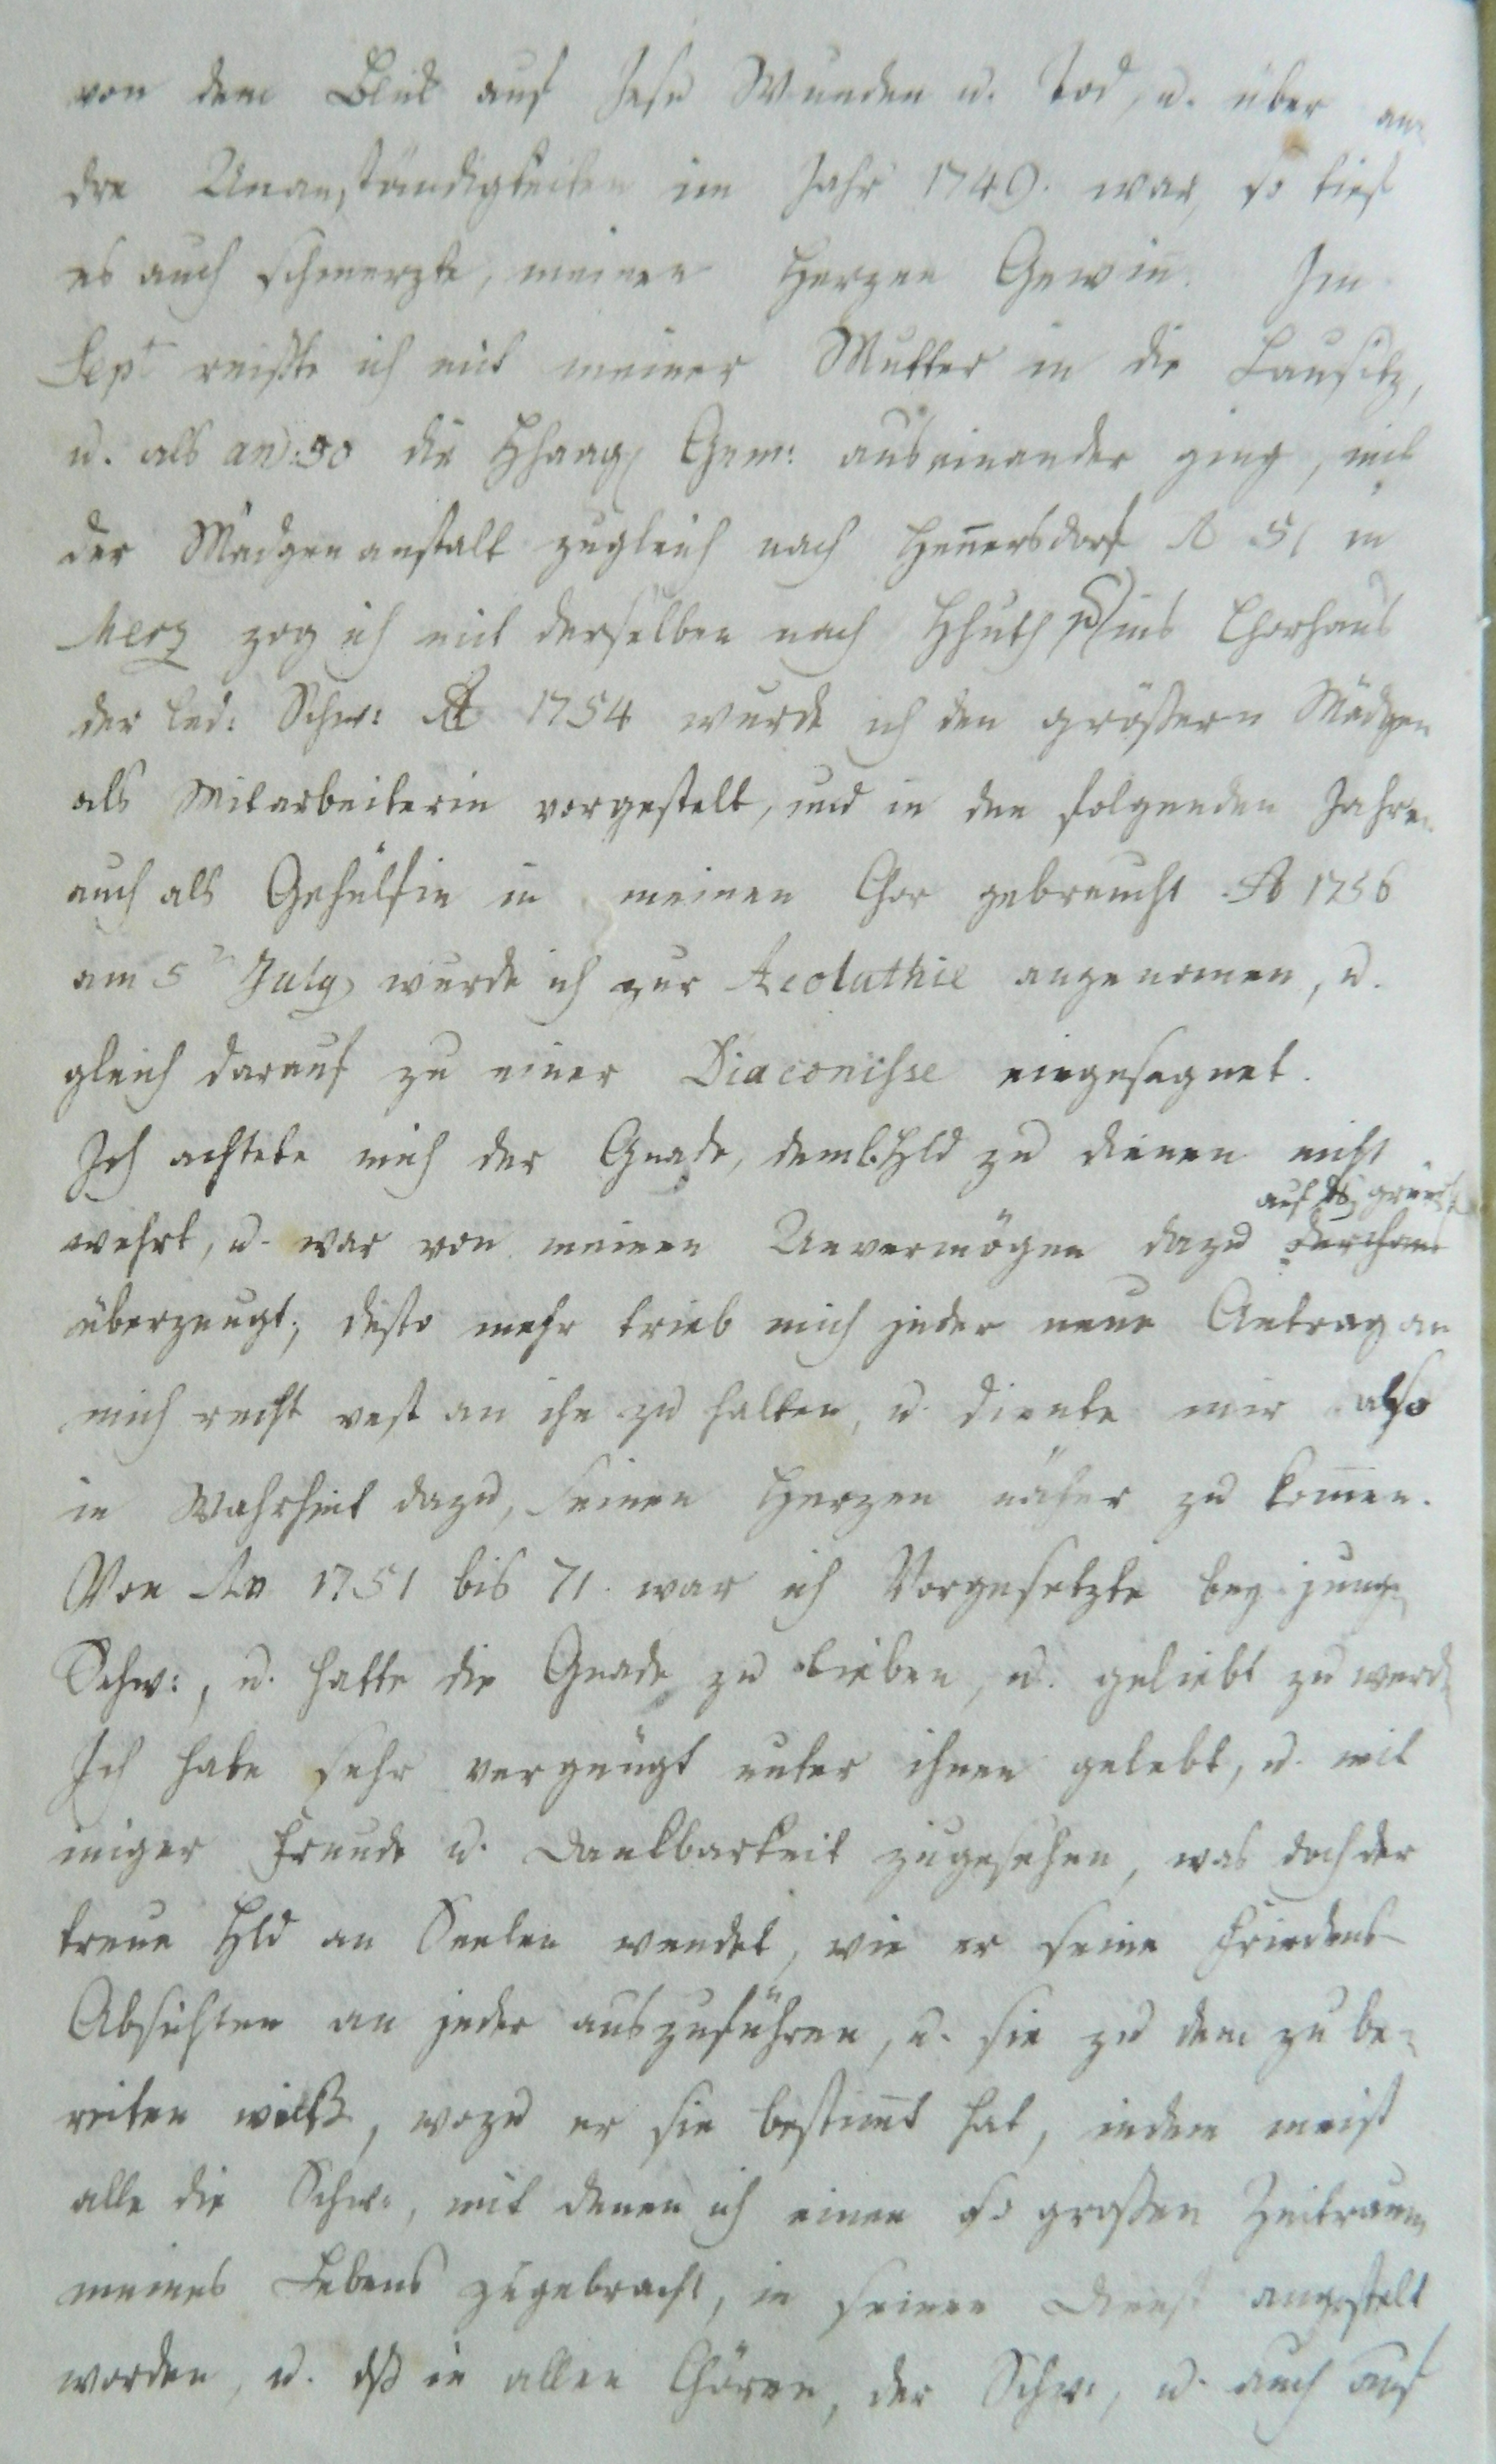 von dem Blick auf Jesu Wunden u. Tod, u. über an-
dre Unanständigkeiten im Jahr 1749. war, so tief
es auch schmerzte, meinen Herzen Gewin. Im
Sept reißte ich mit meiner Mutter in die Lausitz,
u. als an: 50 die Hhaag Gem: auseinander ging, mit
der Mädgenanstalt zugleich nach Hennersdorf Ao 51 in
Merz zog ich mit derselben nach Hhuth ins Chorhaus
der led: Schw: Ao 1754 wurde ich den größern Mädgen
als Mitarbeiterin vorgestelt, und in den folgenden Jahren
auch als Gehülfin in meinen Chor gebraucht. Ao 1756
am 5n July wurde ich zur Acoluthie angenomen, u.
gleich darauf zu einer Diaconisse eingesegnet.
Ich achtete mich der Gnade, dem l. Hld zu dienen nicht
auf
wehrt, u. war von meinen Unvermögen dazu durchaus
überzeugt; desto mehr trieb mich jeder neue Antrag an
mich recht vest an ihn zu halten, u. diente mir also
in Wahrheit dazu, seinen Herzen näher zu komen.
Von Ao 1751 bis 71. war ich Vorgesetzte bey jung
Schw:, u. hatte die Gnade zu lieben, u. geliebt zu werd
Ich habe sehr vergnügt unter ihnen gelebt, u. mit
iniger Freude u. Dankbarkeit zugesehen, was doch der
treue Hld an Seelen wendet, wie er seine Friedens-
Absichten an jeder auszuführen, u. sie zu dem zu be-
reiten weiß, wozu er sie bestimt hat, indem meist
alle die Schw:, mit denen ich einen so großen Zeitraum
meines Lebens zugebracht, in seinen Dienst angestelt
worden, u. dß in allen Chören, der Schw:, u. auch auf